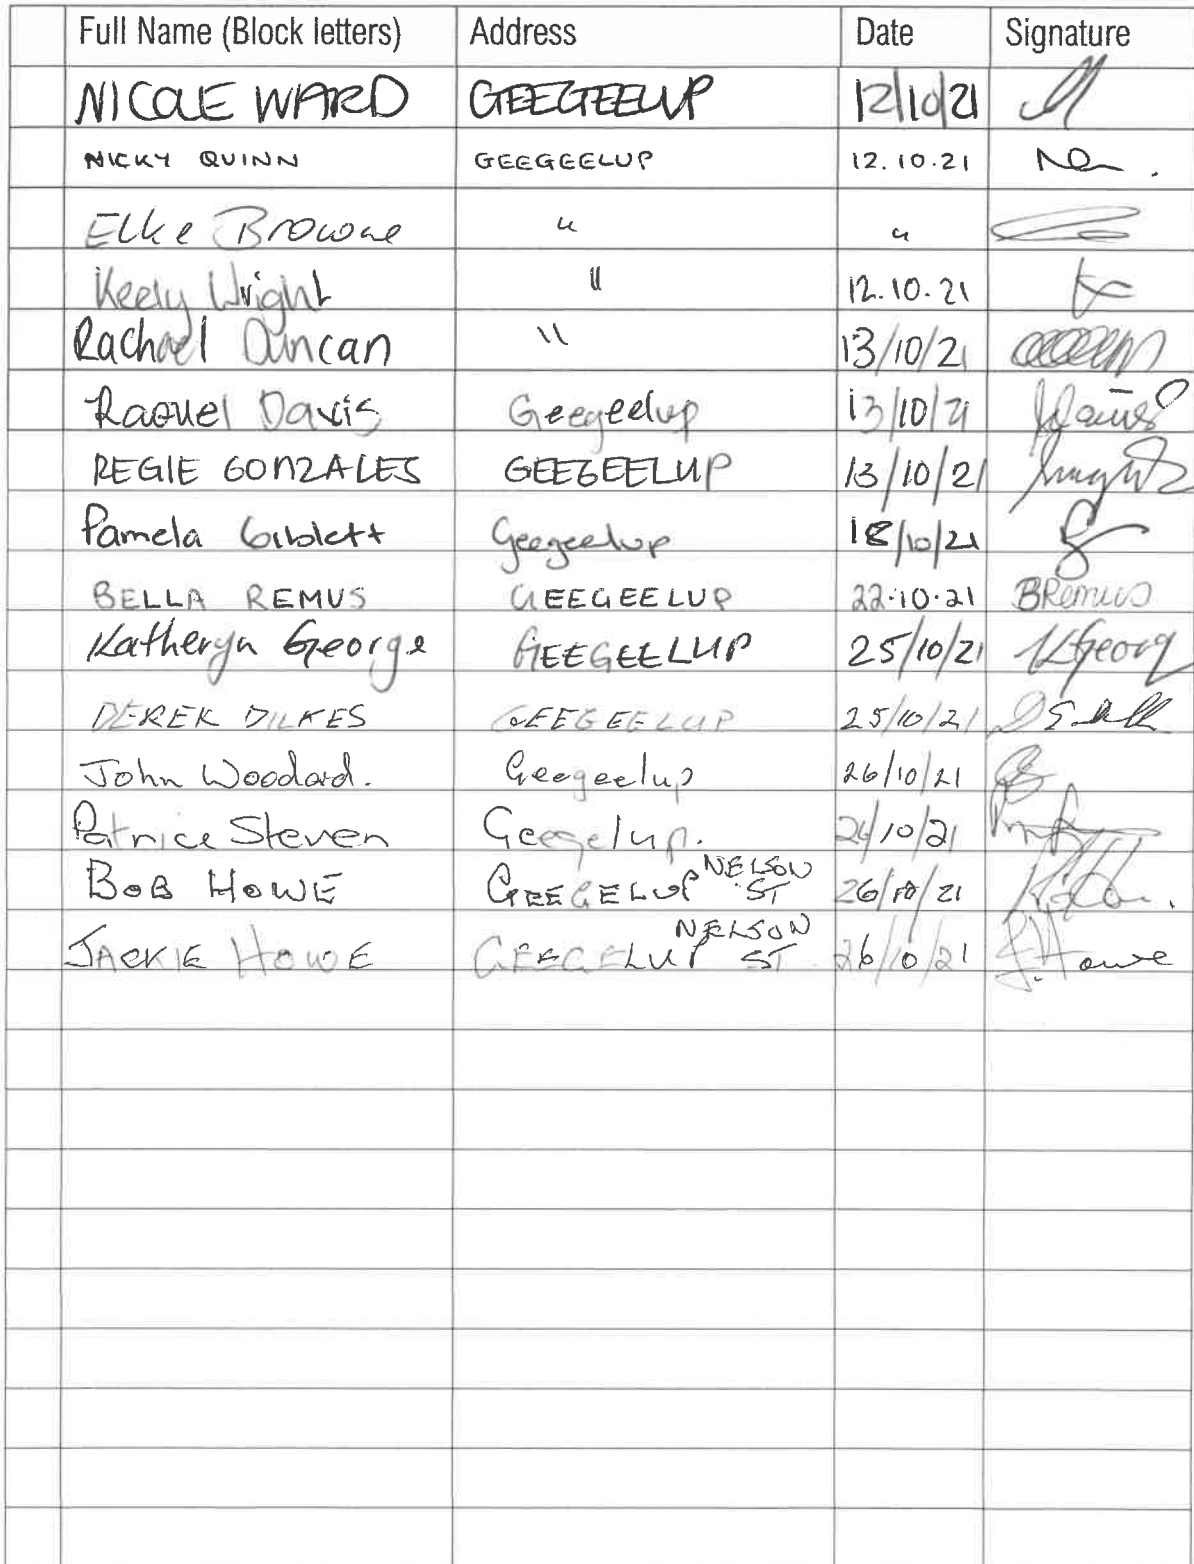 Full Name (Block letters) Address Date Signature
NICOLE WARD GEEGEELUP 12/10/21
NICKY QUINN GEEGEELUP 12.10.21
Elke Browne " "
Keely Wright " 12.10.21
Rachael Duncan " 13/10/21
Raquel Davis Geegeelup 13/10/21
REGIE GONZALES GEEGEELUP 13/10/21
Pamela Giblett Geegeelup 18/10/21
BELLA REMUS GEEGEELUP 22.10.21 BRemus
Katheryn George GEEGEELUP 25/10/21 KGeorg
DEREK DILKES GEEGEELUP 25/10/21
John Woodard. Geegeelup 26/10/21
Patrice Steven Geegelup. 26/10/21
BOB HOWE GEEGELUP NELSON ST 26/10/21
JACKIE HOWE GEEGELUP NELSON ST 26/10/21 J. Howe